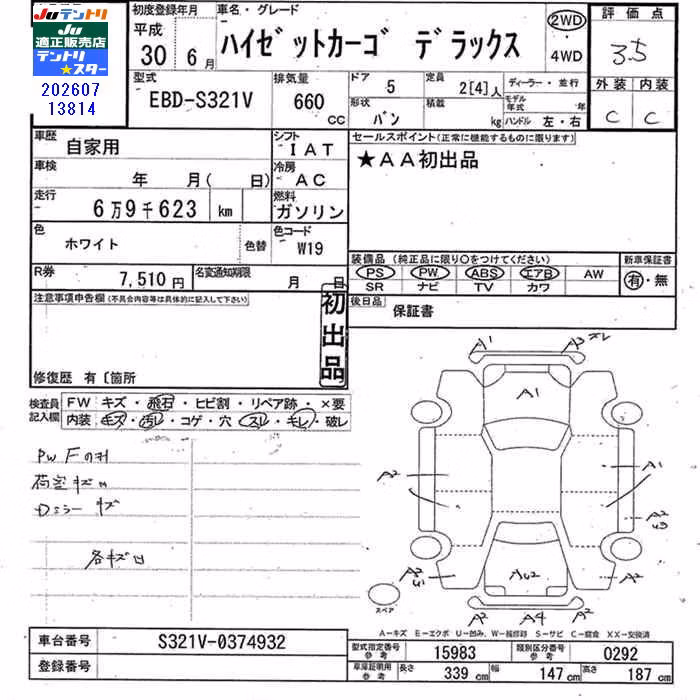 JUテントリ
JU
適正販売店
テントリ
★スター
202607
13814
初度登録年月
平成
30 6月
車名・グレード
ハイゼットカーゴ デラックス
2WD
・
4WD
評価点
3.5
外装 内装
C C
型式
EBD-S321V
排気量
660
CC
ドア
5
定員
2[4]人
ディーラー・並行
形状
バン
積載
kg
モデル年式 年
ハンドル 左・右
車歴
自家用
シフト
IAT
セールスポイント(正常に機能するものに限ります)
★AA初出品
車検
年 月( 日)
冷房
AC
走行
6万9千623 km
燃料
ガソリン
色
ホワイト
色替
色コード
W19
装備品 (純正品に限り○をつけてください)
PS PW ABS エアB AW
SR ナビ TV カワ
新車保証書
有・無
R券
7,510円
名変通知期限
月 日
後日品
保証書
注意事項申告欄(不具合内容等は具体的に記入して下さい)
初出品
修復歴 有〔箇所
検査員
記入欄
FW キズ・飛石・ヒビ割・リペア跡・×要
内装 キズ・汚レ・コゲ・穴・スレ・キレ・破レ
荷室キズ凹
Dミラーキズ
各キズ凹
A1
A1
A2
A1
A2
A2
A2
A2
A4
A2
スペア
A-キズ E-エクボ U-凹み W-補修跡 S-サビ C-腐食 XX-交換済
車台番号
S321V-0374932
登録番号
型式指定番号
参考
15983
類別区分番号
参考
0292
車庫証明用
参考
長さ
339 cm
幅
147 cm
高さ
187 cm